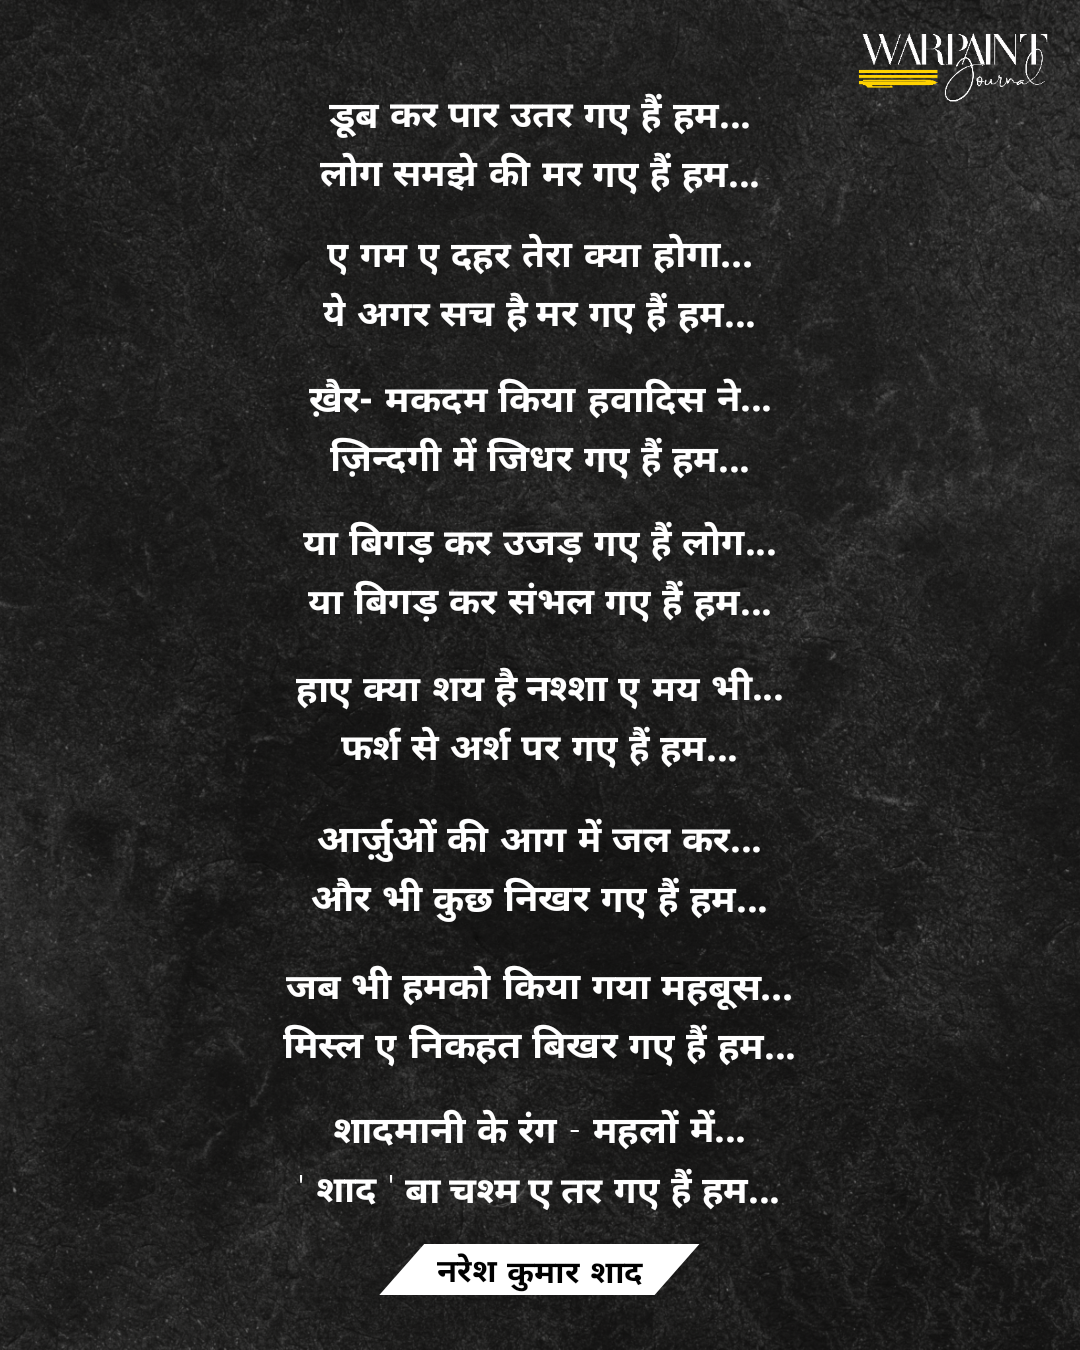 WARPAINT
Journal
डूब कर पार उतर गए हैं हम...
लोग समझे की मर गए हैं हम...
ए गम ए दहर तेरा क्या होगा...
ये अगर सच है मर गए हैं हम...
ख़ैर- मकदम किया हवादिस ने...
ज़िन्दगी में जिधर गए हैं हम...
या बिगड़ कर उजड़ गए हैं लोग...
या बिगड़ कर संभल गए हैं हम...
हाए क्या शय है नश्शा ए मय भी...
फर्श से अर्श पर गए हैं हम...
आर्ज़ुओं की आग में जल कर...
और भी कुछ निखर गए हैं हम...
जब भी हमको किया गया महबूस...
मिस्ल ए निकहत बिखर गए हैं हम...
शादमानी के रंग - महलों में...
' शाद ' बा चश्म ए तर गए हैं हम...
नरेश कुमार शाद